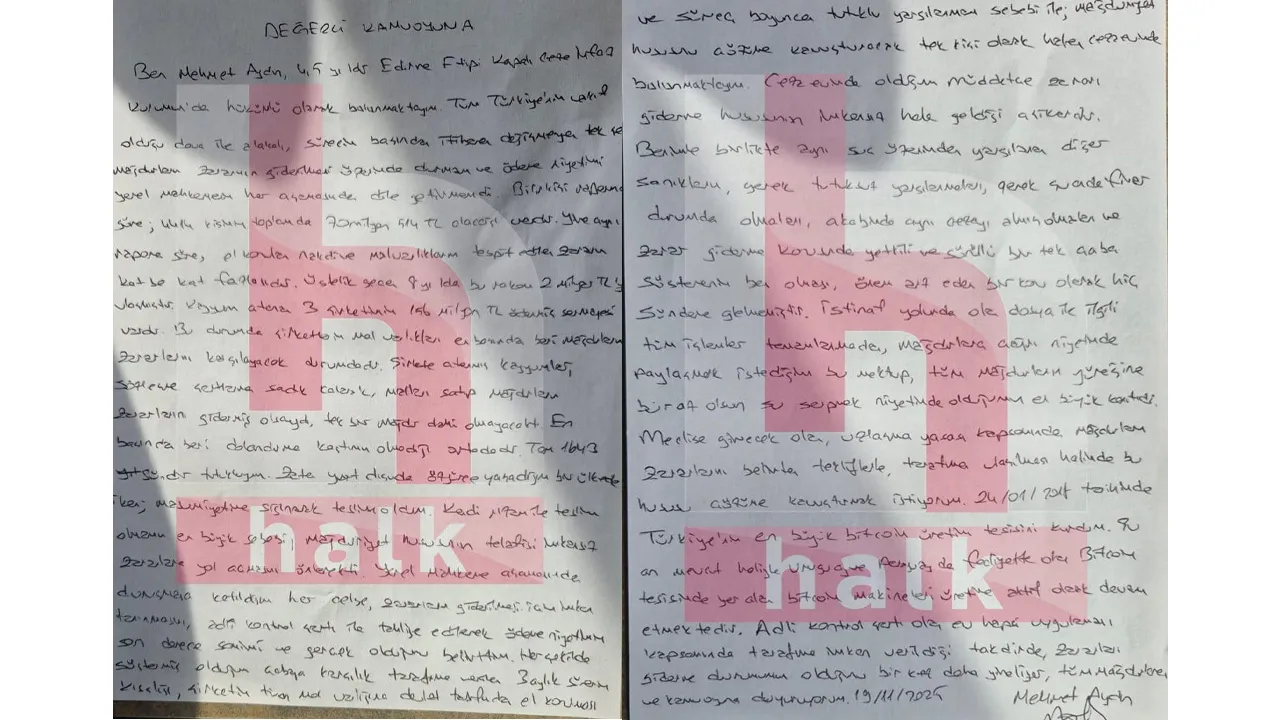 DEĞERLİ KAMUOYUNA
Ben Mehmet Aydın, 4,5 yıldır Edirne F tipi Kapalı Ceza İnfaz
kurumunda hükümlü olarak bulunmaktayım. Tüm Türkiye'nin vakıf
olduğu dava ile alakalı, sürecin başından itibaren değişmeyen tek şey
mağdurların zararının giderilmesi üzerinde durmam ve ödeme niyetimi
yerel mahkemenin her aşamasında dile getirmemdi. Bilirkişi raporuna
göre; ülkü kısmın toplamda milyon TL alacağı vardır. Yine aynı
rapora göre, el konulan nakdi ve malvarlıklarım tespit edilen zararın
kat be kat fazlasıdır. Üstelik geçen 8 yılda bu rakam 2 milyar TL'yi
ulaşmıştır. Kayyum atanan 3 şirketimin 156 milyon TL ödenmiş sermayesi
vardır. Bu durumda şirketlerin mal varlıkları en başından beri mağdurların
zararlarını karşılayacak durumdadır. Şirkete atanmış kayyumlar,
sözleşme şartlarına sadık kalarak, malları satıp mağdurların
zararlarını gidermiş olsaydı, tek bir mağdur dahi olmayacaktı. En
başından beri dolandırma kastımın olmadığı ortadadır. Tam 1643
gündür tutukluyum. Zaten yurt dışında özgürce yaşadığım bir ülkede
iken; masumiyetime sığınarak teslim oldum. Kendi rızam ile teslim
olmamın en büyük sebebi; mağduriyet hususunun telafisi imkansız
zararlara yol açmasını önlemekti. Yerel Mahkeme aşamasında
duruşmaya katıldığım her celse, zararların giderilmesi için imkan
tanınması, adli kontrol şartı ile tahliye edilerek ödeme niyetimin
son derece samimi ve gerçek olduğunu belirttim. Her şekilde
göstermiş olduğum çabaya karşılık tarafıma verilen 3 aylık sürenin
kısalığı, şirketin tüm mal varlığına devlet tarafında el konması
ve süreç boyunca tutuklu yargılanmam sebebi ile; mağduriyet
hususunu çözüme kavuşturacak tek kişi olarak halen cezaevinde
bulunmaktayım. Cezaevinde olduğum müddetçe zararı
giderme hususunun imkansız hale geldiği aşikardır.
Benimle birlikte aynı suç üzerinden yargılanan diğer
sanıkların, gerek tutuksuz yargılanmaları, gerek şu anda firar
durumda olmaları, akabinde aynı cezayı almış olmaları ve
zarar giderme konusunda yetkili ve gönüllü bir tek çaba
gösterenin ben olması, önem arz eden bir konu olarak hiç
gündeme gelmemiştir. İstinaf yolunda olan dosya ile ilgili
tüm işlemler tamamlanmadan, mağdurlara açık niyetimde
paylaşmak istediğim bu mektup, tüm mağdurların yüreğine
biraz olsun su serpmek niyetinde olduğumun en büyük kanıtıdır.
Meclise girecek olan, uzlaşma yasası kapsamında mağdurların
zararlarını belirten tekliflerle, tarafıma ulaşılması halinde bu
hususu çözüme kavuşturmak istiyorum. 24/01/2018 tarihinde
Türkiye'nin en büyük bitcoin üretim tesisini kurdum. Şu
an mevcut haliyle Uruguay ve Paraguay'da faaliyette olan Bitcoin
tesisimde yer alan bitcoin makineleri üretime aktif olarak devam
etmektedir. Adli kontrol şartı olan ev hapsi uygulaması
kapsamında tarafıma imkan verildiği takdirde, zararları
giderme durumumun olduğunu bir kez daha yineliyor, tüm mağdurlara
ve kamuoyuna duyuruyorum. 19/11/2025
Mehmet Aydın
h
halk
h
halk